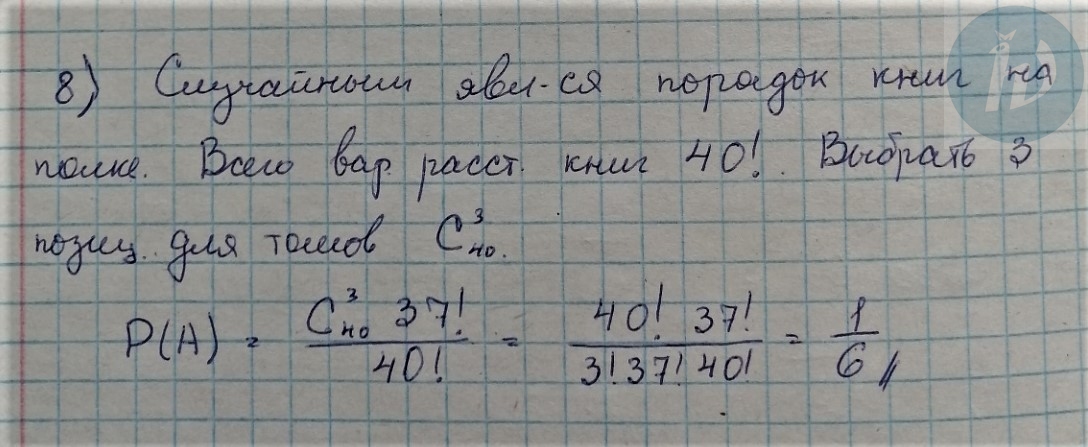 8) Случайным явл-ся порядок книг на
полке. Всего вар. расст. книг 40! Выбрать 3
позиц. для томов C³₄₀.
P(A) = (C³₄₀ 37!)/40! = (40! 37!)/(3! 37! 40!) = 1/6 //